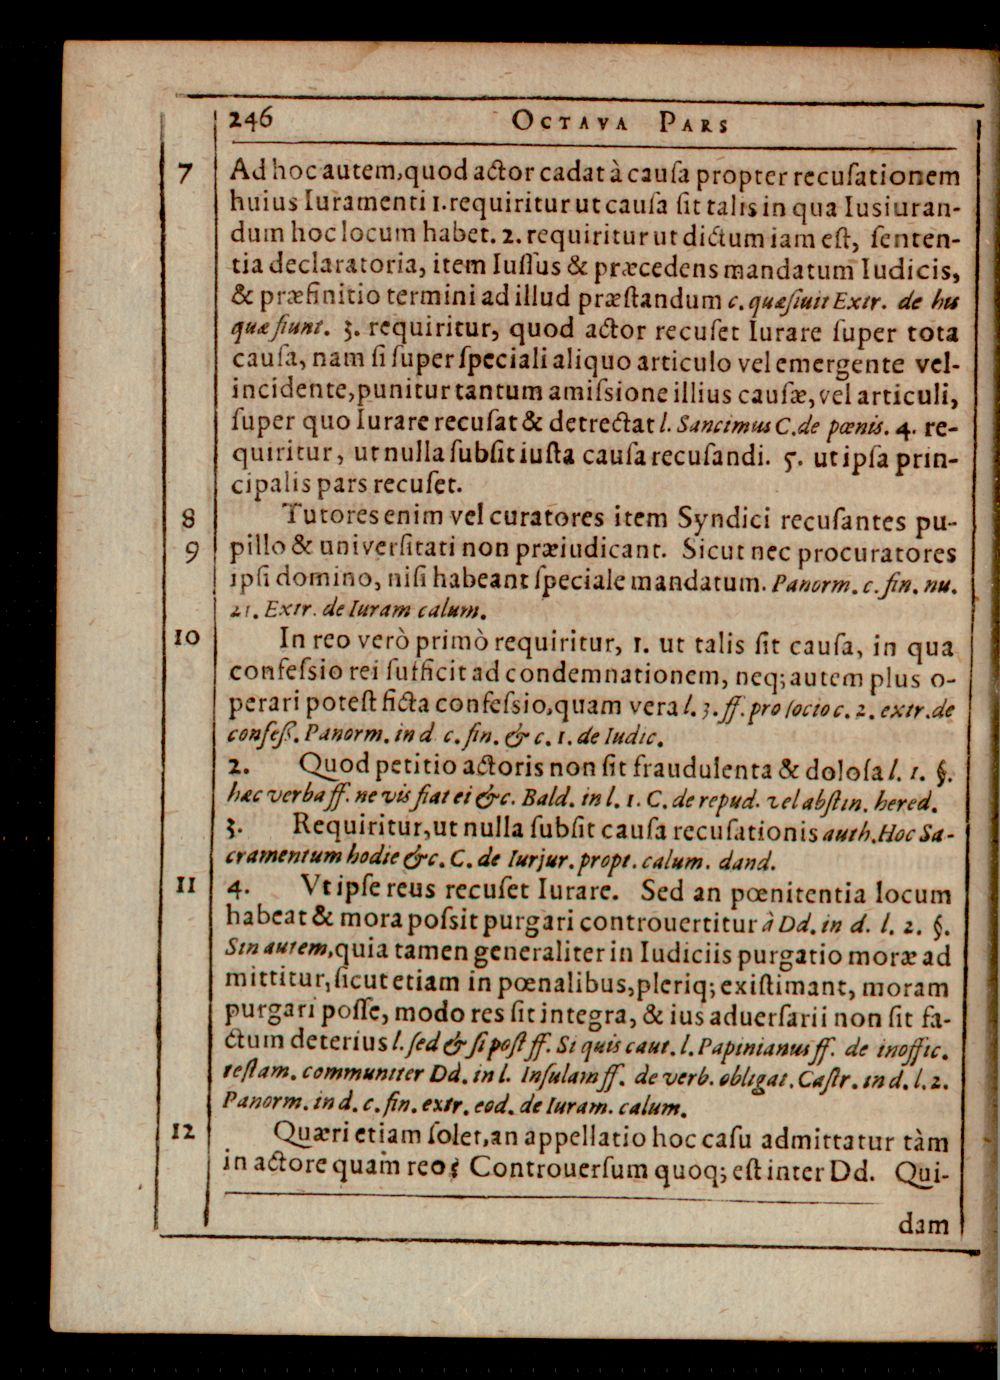 246 OCTAVA PARS
7 Ad hoc autem, quod actor cadat à cauſa propter recuſationem
huius Iuramenti 1. requiritur ut cauſa ſit talis in qua Iusiuran-
dum hoc locum habet. 2. requiritur ut dictum iam eſt, ſenten-
tia declaratoria, item Iuſſus & præcedens mandatum Iudicis,
& præfinitio termini ad illud præſtandum c. quæſiuit Extr. de his
quæ fiunt. 3. requiritur, quod actor recuſet Iurare ſuper tota
cauſa, nam ſi ſuper ſpeciali aliquo articulo vel emergente vel-
incidente, punitur tantum amiſsione illius cauſæ, vel articuli,
ſuper quo Iurare recuſat & detrectat l. Sancimus C. de pœnis. 4. re-
quiritur, ut nulla ſubſit iuſta cauſa recuſandi. 5. ut ipſa prin-
cipalis pars recuſet.
8 Tutores enim vel curatores item Syndici recuſantes pu-
9 pillo & univerſitati non præiudicant. Sicut nec procuratores
ipſi domino, niſi habeant ſpeciale mandatum. Panorm. c. fin. nu.
21. Extr. de Iuram calum.
10 In reo verò primò requiritur, 1. ut talis ſit cauſa, in qua
confeſsio rei ſufficit ad condemnationem, neq; autem plus o-
perari poteſt ficta confeſsio, quam vera l. 3. ff. pro ſocio c. 2. extr. de
confeß. Panorm. in d c. fin. & c. 1. de Iudic.
2. Quod petitio actoris non ſit fraudulenta & doloſa l. 1. §.
hæc verba ff. ne vis fiat ei &c. Bald. in l. 1. C. de repud. vel abſtin. hered.
3. Requiritur, ut nulla ſubſit cauſa recuſationis auth. Hoc Sa-
cramentum hodie &c. C. de Iurjur. propt. calum. dand.
11 4. Vt ipſe reus recuſet Iurare. Sed an pœnitentia locum
habeat & mora poſsit purgari controuertitur à Dd. in d. l. 2. §.
Sin autem, quia tamen generaliter in Iudiciis purgatio moræ ad
mittitur, ſicut etiam in pœnalibus, pleriq; exiſtimant, moram
purgari poſſe, modo res ſit integra, & ius aduerſarii non ſit fa-
ctum deterius l. ſed & ſi poſt ff. Si quis caut. l. Papinianus ff. de inoffic.
teſtam. communiter Dd. in l. Inſulam ff. de verb. obligat. Caſtr. in d. l. 2.
Panorm. in d. c. fin. extr. eod. de Iuram. calum.
12 Quæri etiam ſolet, an appellatio hoc caſu admittatur tàm
in actore quam reo? Controuerſum quoq; eſt inter Dd. Qui-
dam